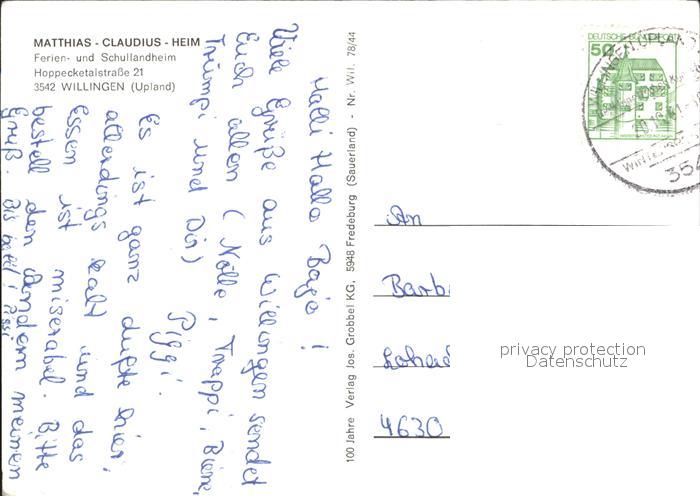 MATTHIAS - CLAUDIUS - HEIM
Ferien- und Schullandheim
Hoppecketalstraße 21
3542 WILLINGEN (Upland)
Halli Hallo Baje!
Viele Grüße aus Willingen sendet
Euch allen (Nölle, Trappi, Biene,
Trumpi und Dir) Piggi.
Es ist ganz dufte hier,
allerdings kalt und das
Essen ist miserabel. Bitte
bestell den Andern meinen
Gruß. Bis
100 Jahre Verlag Jos. Grobbel KG, 5948 Fredeburg (Sauerland) - Nr. Wil. 78/44
DEUTSCHE BUNDESPOST
50
WILLINGEN, UPLAND
354
An
Barb
Lohad
4630
privacy protection
Datenschutz